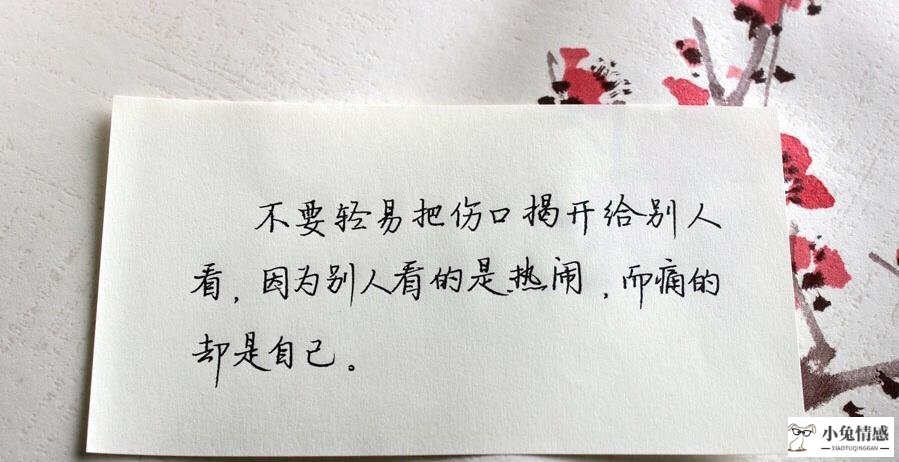 不要轻易把伤口揭开给别人
看，因为别人看的是热闹，而痛的
却是自己。
小兔情感
XIAOTUQINGGAN